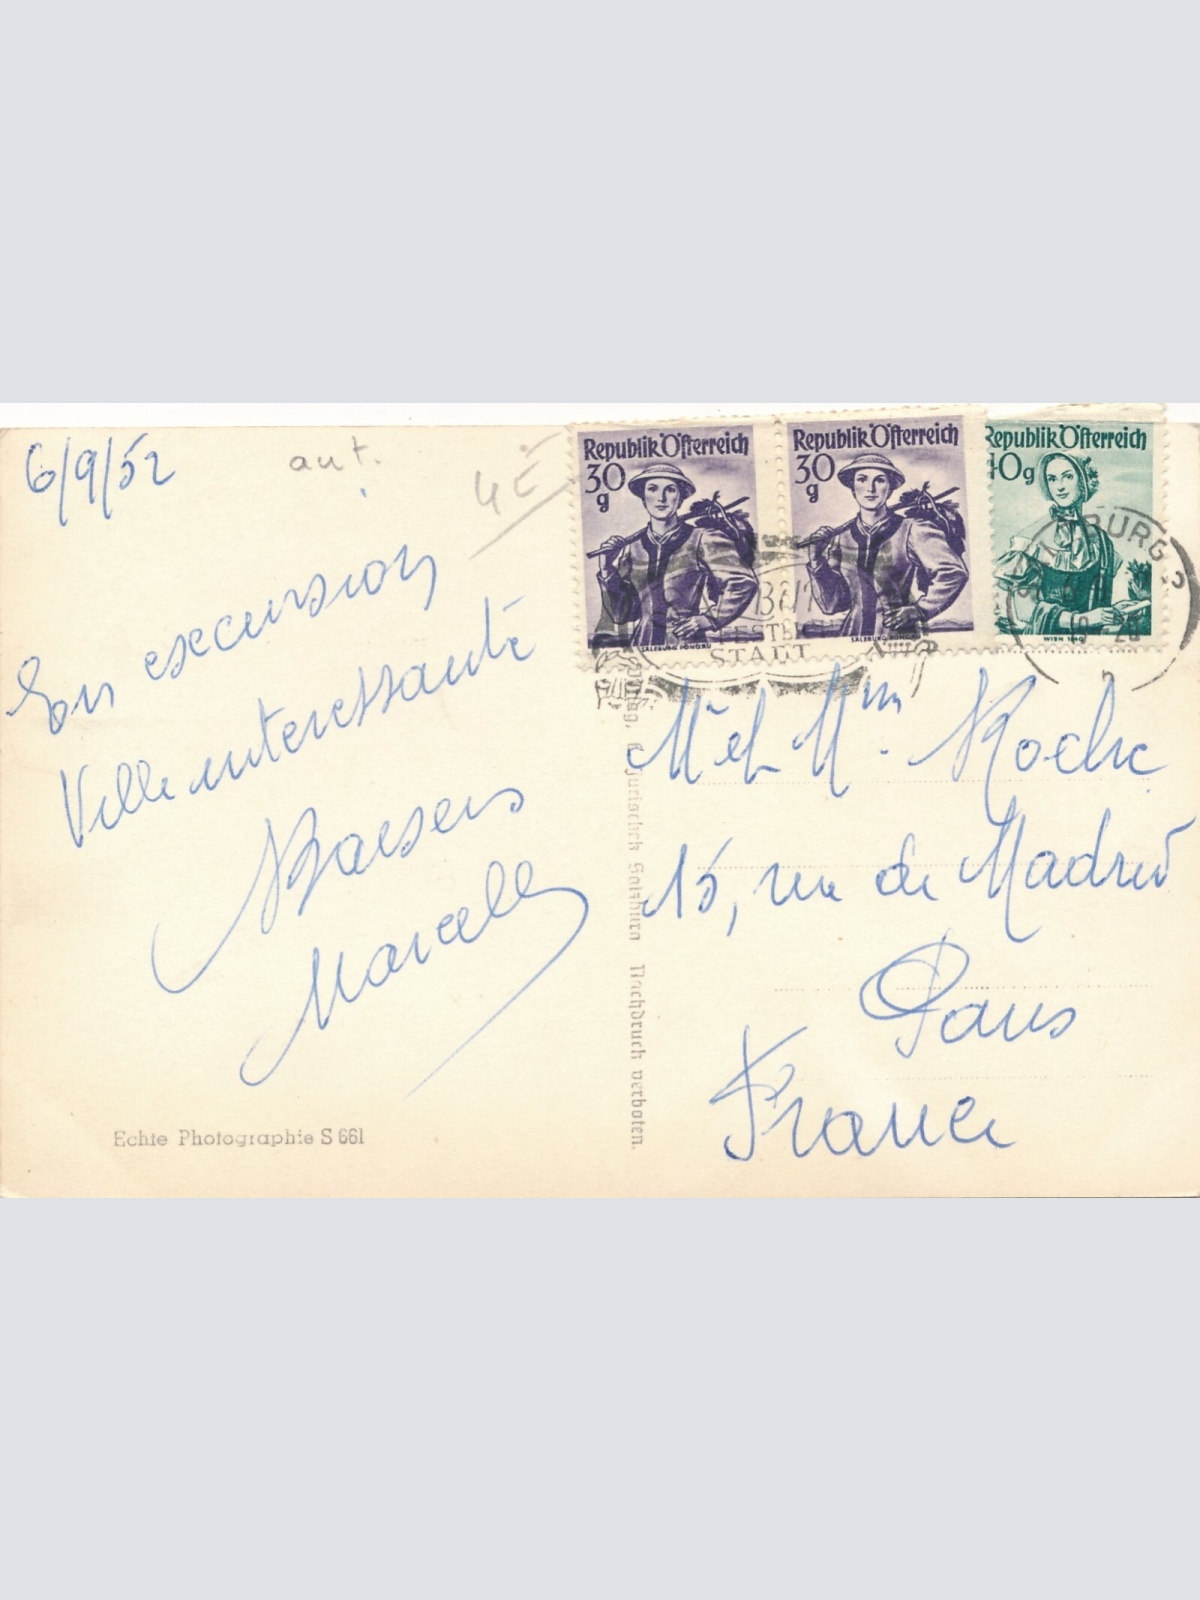 6/9/52
aut.
4€
En excursion
Ville interessante
Baisers
Marcelle
Echte Photographie S 661
Nachdruck verboten.
Republik Österreich
30
g
SALZBURG PONGAU
Republik Österreich
30
g
SALZBURG PONGAU
Republik Österreich
40g
WIEN 1840
STADT
M et Mme Roche
15, rue de Madrid
Paris
France